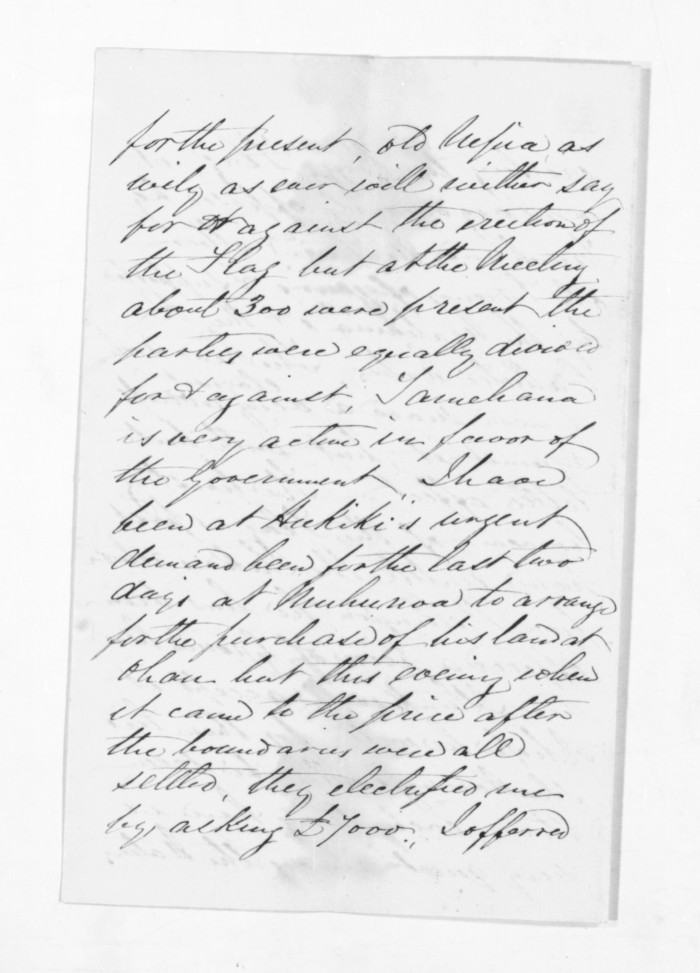 for the present, old Nepia, as
wily as ever will neither say
for or against the erection of
the Flag but at the Meeting
about 300 were present the
parties were equally divided
for & against, Tamehana
is very active in favor of
the Government, I have
been at Hukiki's urgent
demand been for the last two
days at Muhunoa to arrange
for the purchase of his land at
Ohau but this evening when
it came to the price after
the boundaries were all
settled, they electrified me
by asking £7000., I offered